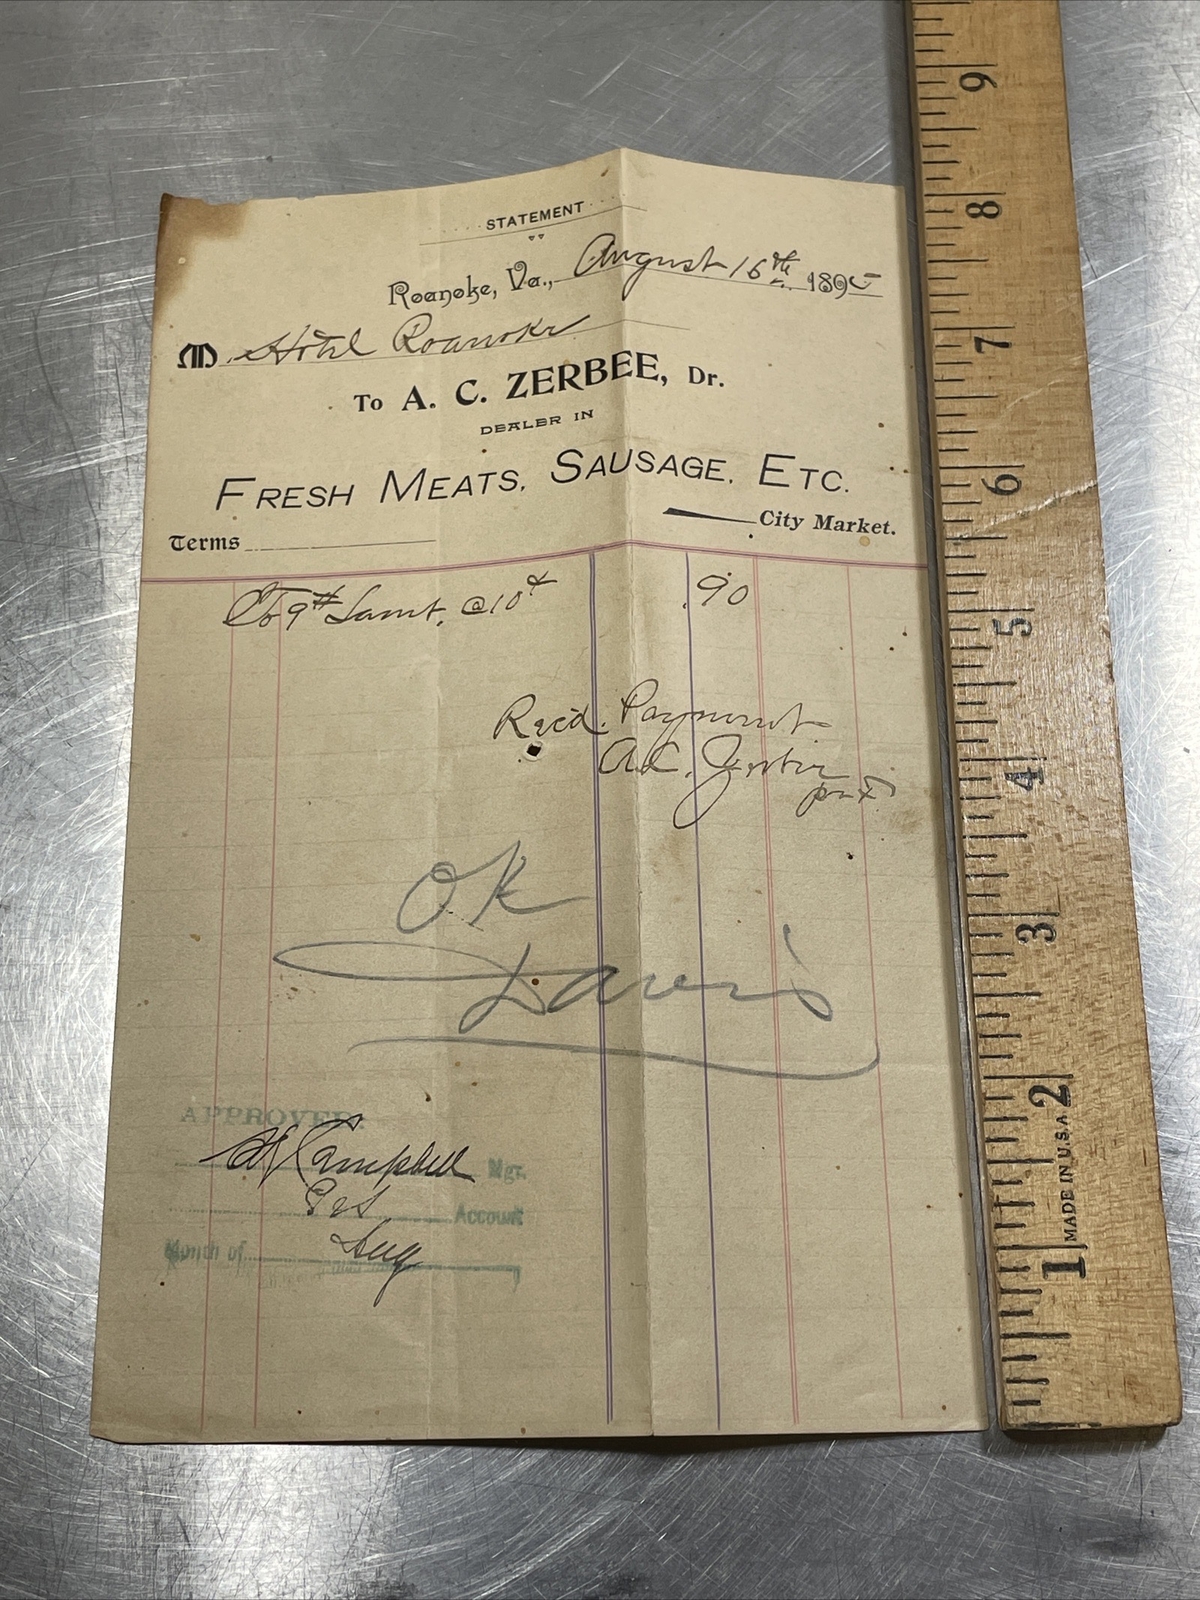 STATEMENT
Roanoke, Va., August 16th 1895
M Hotel Roanoke
To A. C. ZERBEE, Dr.
DEALER IN
FRESH MEATS, SAUSAGE, ETC.
City Market.
Terms
To 9# Lamb, @ 10¢ .90
Recd. Payment
A.C. Zerbee
OK
Davis
APPROVED:
Campbell Mgr.
Account
Month of Aug
9
8
7
6
5
4
3
2
1
MADE IN U.S.A.